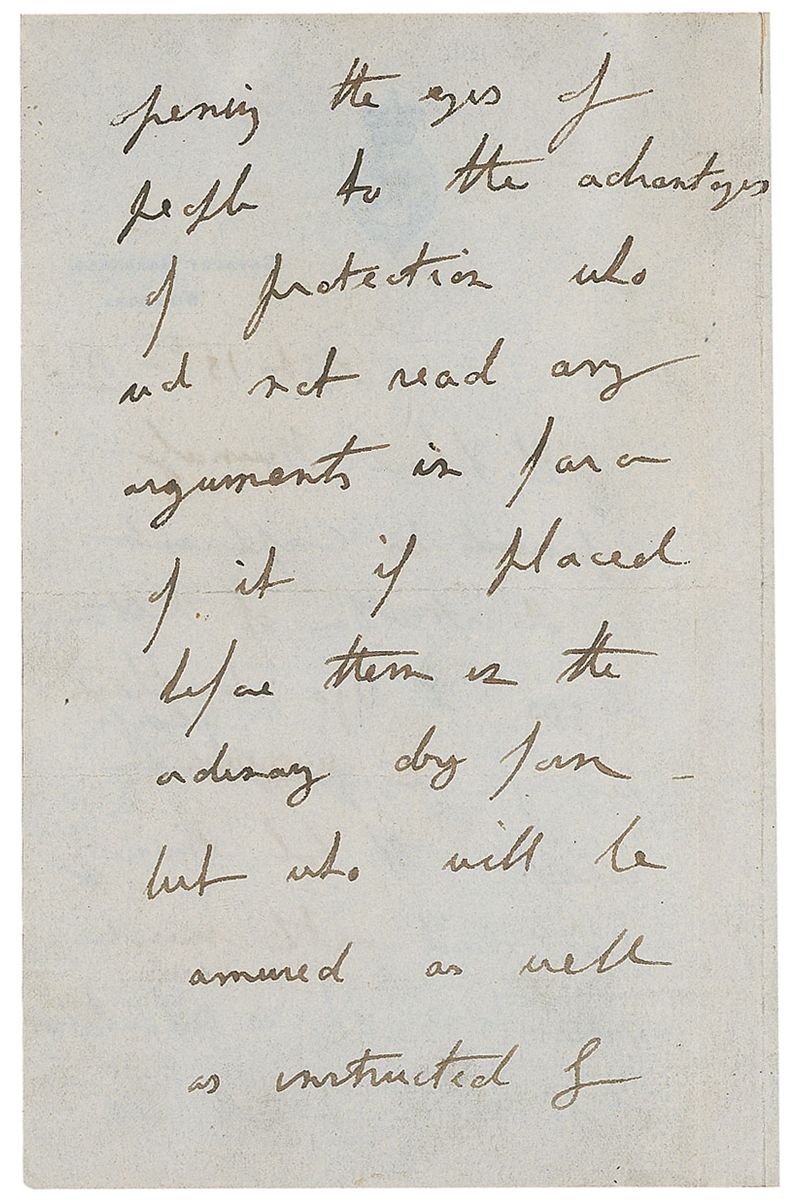 opening the eyes of
people to the advantages
of protection who
wd not read any
arguments in favor
of it if placed
before them in the
ordinary dry form -
but who will be
amused as well
as instructed by